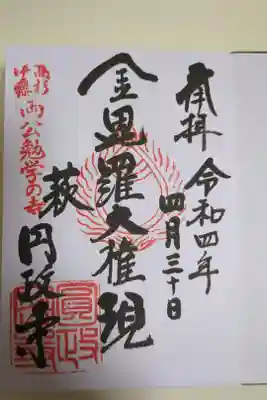 奉拝
令和四年
四月三十日
金毘羅大権現
萩
円政寺
高杉
伊藤
両公勉学の寺